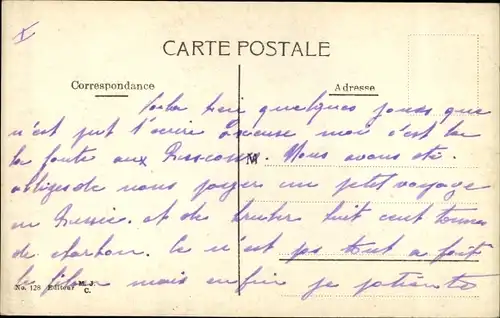 X
CARTE POSTALE
Correspondance
Adresse
Voila bien quelques jours que
n'est put t'ecrire excuse moi c'est la
la faute aux M. Nous avons été
obliges de nous payer un petit voyage
en Russie et de huit cent tonnes
de charbon. Ce n'est pas tout a fait
le filon mais enfin je patiente
No. 128 Editeur M. J. C.